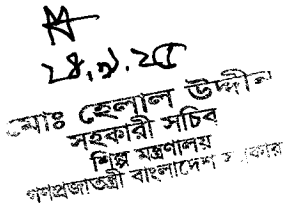 মোঃ হেলাল উদ্দীন
সহকারী সচিব
শিল্প মন্ত্রণালয়
গণপ্রজাতন্ত্রী বাংলাদেশ সরকার